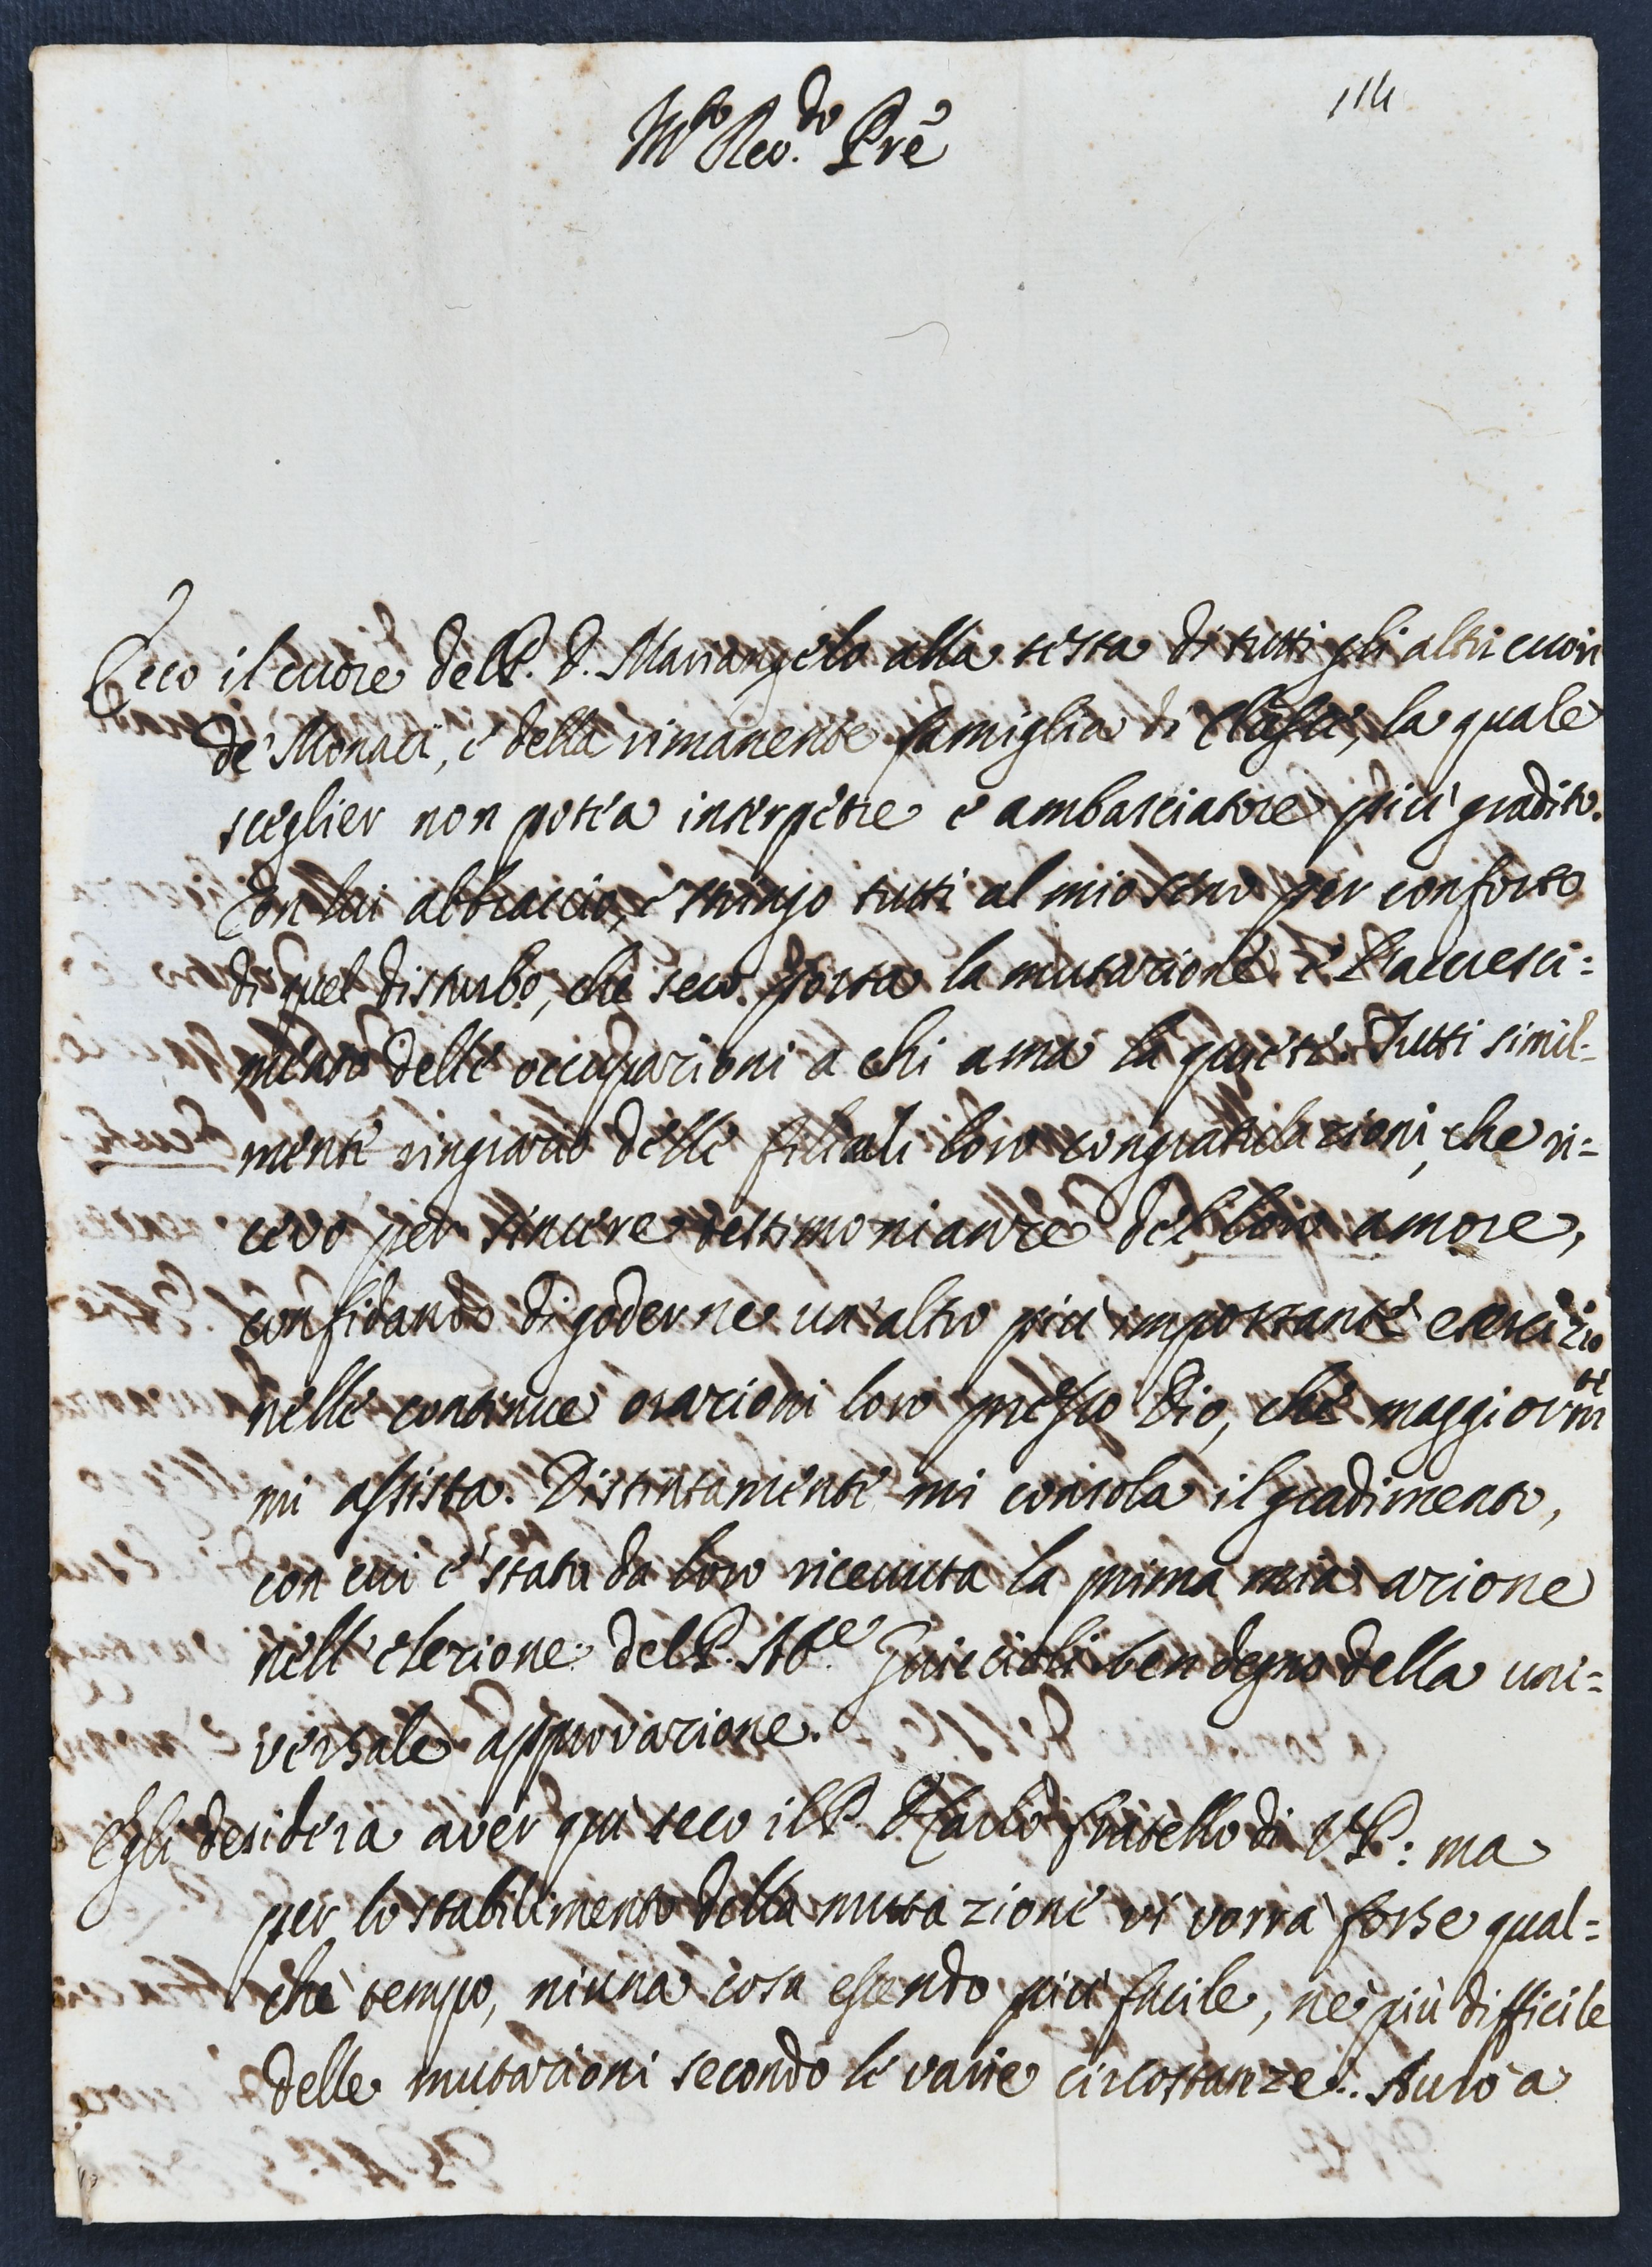 114
M.to Rev.do Prē
Ecco il cuore del P. D. Mariangelo alla testa di tutti gli altri cuori
de' Monaci, e della rimanente famiglia di Classe, la quale
sceglier non potea interpetre e ambasciatore più gradito.
Con lui abbraccio, e stringo tutti al mio seno per conforto
di quel disturbo, che seco porta la mutazione e l'accresci=
mento delle occupazioni a chi ama la quiete. Tutti simil=
mente ringrazio delle filiali loro congratulazioni, che ri=
cevo per sincere testimonianze del loro amore,
confidando di goderne un altro più importante esercizio
nelle continue orazioni loro presso Dio, che maggiorm.te
mi assista. Distintamente mi consola il gradimento,
con cui è stata da loro ricevuta la prima mia azione
nell'elezione del P. Ab.e Guiccioli ben degno della uni=
versale approvazione.
Egli desidera aver qui seco il P. D. Carlo fratello di V.P.: ma
per lo stabilimento della mutazione vi vorrà forse qual=
che tempo, niuna cosa essendo più facile, nè più difficile
delle mutazioni secondo le varie circostanze. Avrò a